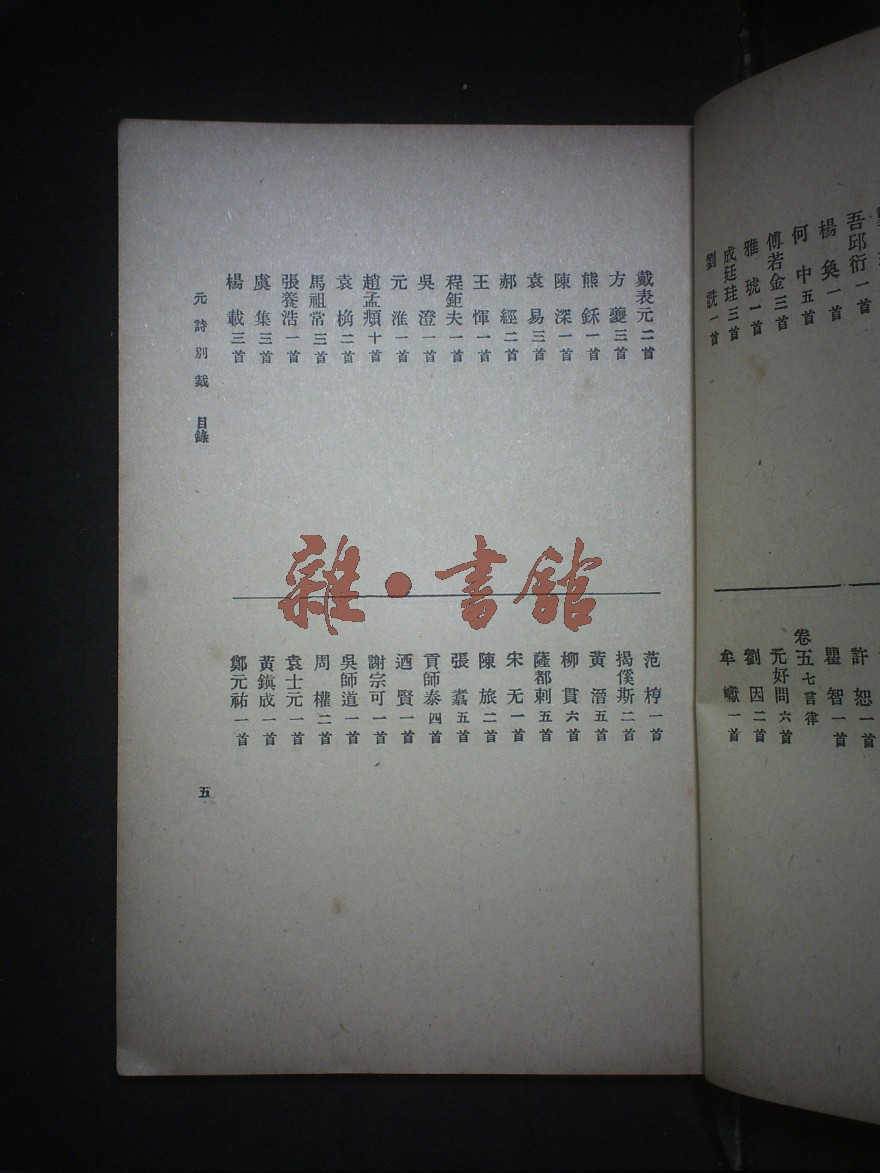 吾邱衍一首
楊奐一首
何中五首
傅若金三首
雅琥一首
成廷珪三首
劉詵一首
許恕一首
瞿智一首
卷五七言律
元好問六首
劉因二首
牟巘一首
戴表元二首
方夔三首
熊鉌一首
陳深一首
袁易三首
郝經二首
王惲一首
程鉅夫一首
吳澄一首
元淮一首
趙孟頫十首
袁桷二首
馬祖常三首
張養浩一首
虞集三首
楊載三首
范梈一首
揭傒斯二首
黃溍五首
柳貫六首
薩都剌五首
宋无一首
陳旅二首
張翥五首
貢師泰四首
迺賢一首
謝宗可一首
吳師道一首
周權二首
袁士元一首
黃鎭成一首
鄭元祐一首
元詩別裁 目錄
五
雜·書館